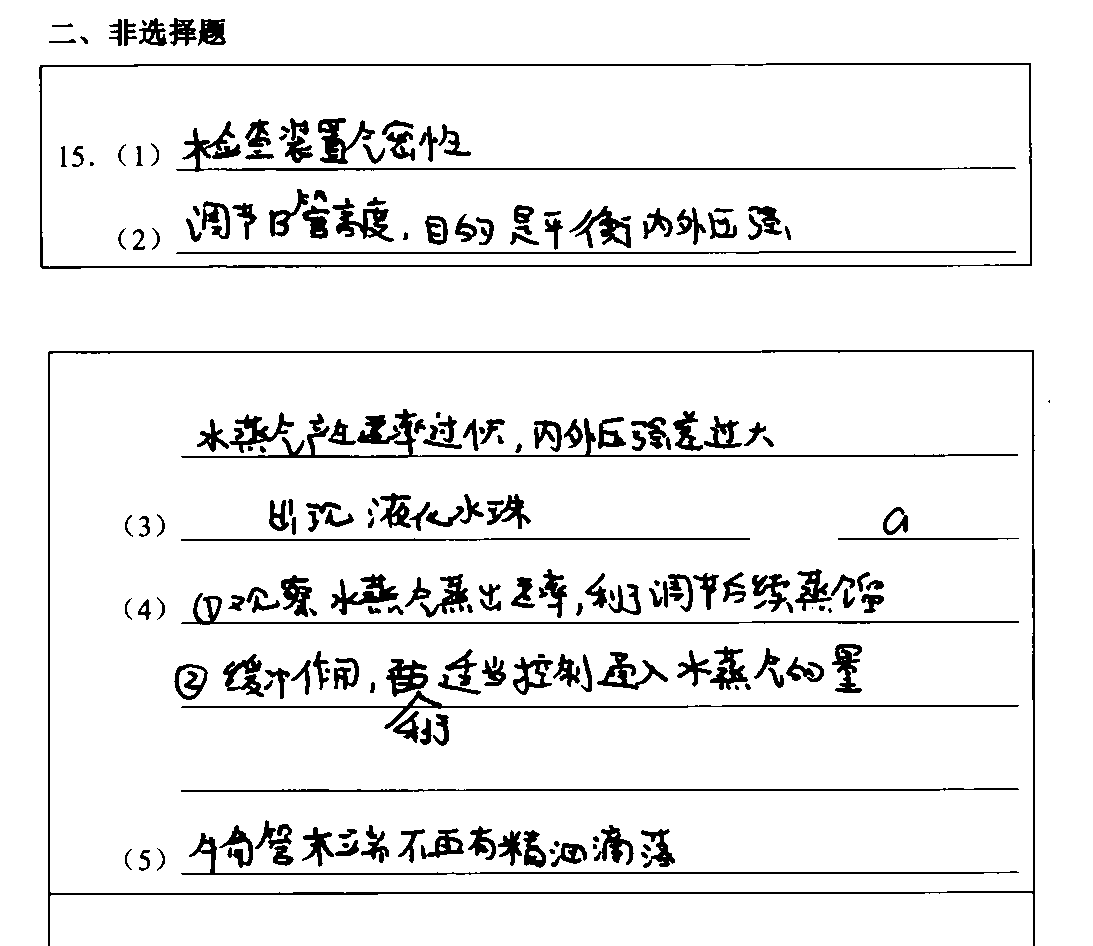 二、非选择题
15.（1）检查装置气密性
（2）调节B管高度，目的是平衡内外压强，
水蒸气产生速率过快，内外压强差过大
（3）出现液化水珠 a
（4）①观察水蒸气蒸出速率，利于调节后续蒸馏
②缓冲作用，适当控制通入水蒸气的量
利于
（5）牛角管末端不再有精油滴落